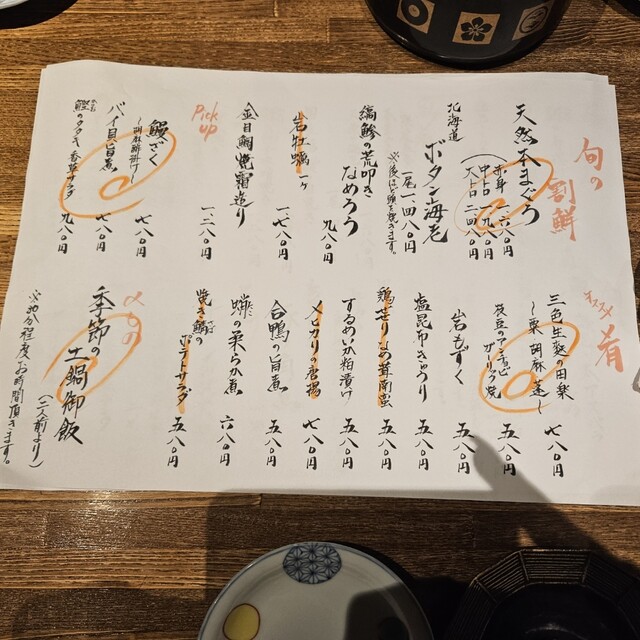 旬の割鮮
天然本まぐろ
赤身
中トロ
大トロ
北海道
ボタン海老
一尾一四八〇円
※後ほど頭を焼きます。
縞鯵の荒叩き
なめろう
九八〇円
岩牡蠣一ケ
一七八〇円
金目鯛焼霜造り
一二八〇円
Pick up
鰻ざく
～胡麻酢掛け～
七八〇円
バイ貝旨煮
七八〇円
鰹のタタキ香草サラダ
九八〇円
オススメ
肴
三色生麩田楽
～粟、胡麻、蓬～
七八〇円
枝豆のアンチョビ
ガーリック焼
五八〇円
岩もずく
五八〇円
塩昆布きゅうり
五八〇円
五八〇円
するめいか粕漬け
五八〇円
メヒカリの唐揚
七八〇円
合鴨の旨煮
五八〇円
蛸の柔らか煮
六八〇円
焼き鯖の
ポテトサラダ
五八〇円
〆もの
季節の土鍋御飯
(二人前より)
※30分程度お時間頂きます。